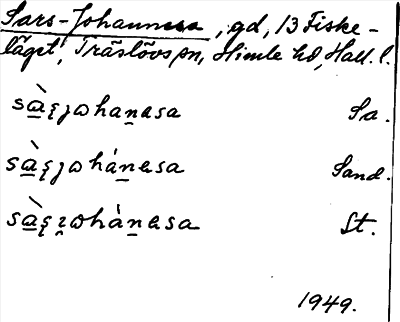 Sars-Johannesa, gd, 13 Fiske-
läget, Träslövs sn, Himle hd, Hall. l.
sà̲şȷɷhan̲ɐsa Sa.
sà̲şȷɷhán̲ɐsa Sand.
sà̲şʐɷhàn̲ɐsa St.
1949.